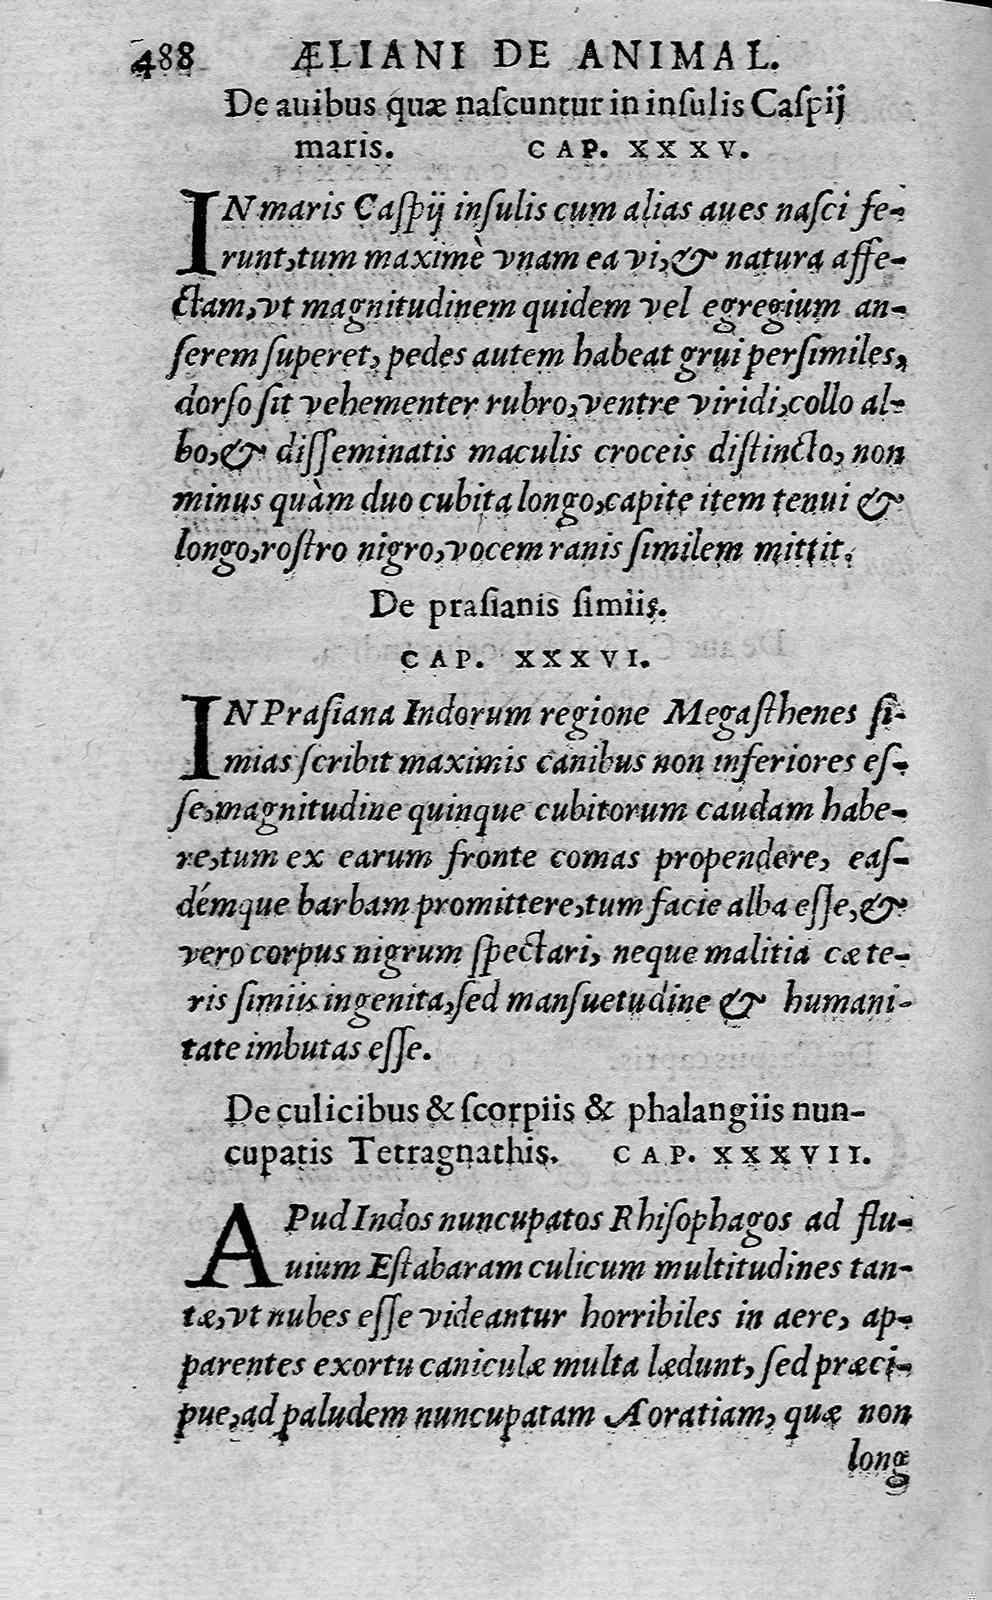 488 ÆLIANI DE ANIMAL.
De auibus quæ naſcuntur in inſulis Caſpij
maris. CAP. XXXV.
IN maris Caſpij inſulis cum alias aues naſci fe-
runt, tum maximè vnam ea vi, & natura affe-
ctam, vt magnitudinem quidem vel egregium an-
ſerem ſuperet, pedes autem habeat grui perſimiles,
dorſo ſit vehementer rubro, ventre viridi, collo al-
bo, & diſſeminatis maculis croceis diſtincto, non
minus quàm duo cubita longo, capite item tenui &
longo, roſtro nigro, vocem ranis ſimilem mittit.
De praſianis ſimiis.
CAP. XXXVI.
IN Praſiana Indorum regione Megaſthenes ſi-
mias ſcribit maximis canibus non inferiores eſ-
ſe, magnitudine quinque cubitorum caudam habe-
re, tum ex earum fronte comas propendere, eaſ-
démque barbam promittere, tum facie alba eſſe, &
vero corpus nigrum ſpectari, neque malitia cæte-
ris ſimiis ingenita, ſed manſuetudine & humani-
tate imbutas eſſe.
De culicibus & ſcorpiis & phalangiis nun-
cupatis Tetragnathis. CAP. XXXVII.
APud Indos nuncupatos Rhiſophagos ad flu-
uium Eſtabaram culicum multitudines tan-
tæ, vt nubes eſſe videantur horribiles in aere, ap-
parentes exortu caniculæ multa lædunt, ſed præci-
pue, ad paludem nuncupatam Aoratiam, quæ non
long